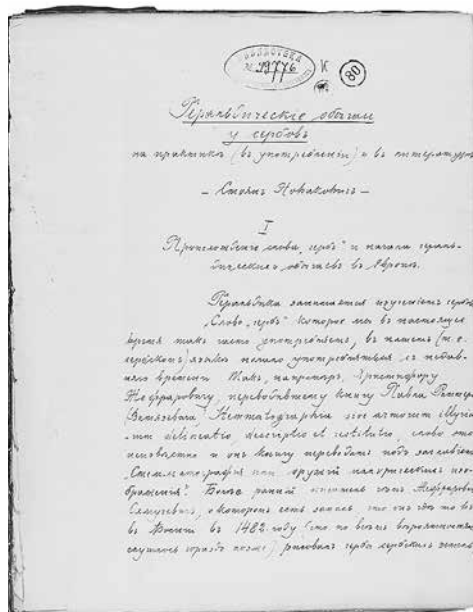 БИБЛИОТЕКА
№ 19776
К
80
Геральдические обычаи
у сербовъ
на практикѣ (въ употребленіи) и въ литературѣ
— Стоянъ Новаковичъ —
I
Происхожденіе слова „гербъ“ и начала гераль-
дическихъ обычаевъ въ Европѣ.
Геральдика занимается изученіемъ
„Слово „гербъ“ которое мы въ настоящее
время такъ часто употребляемъ, въ нашемъ (т. е.
сербскомъ) языкѣ начало употребляться съ недав-
няго времени. Такъ, напримѣръ, Христофору
Жефаровичу, переводившему книгу Павла Риттера
(Витезовича) Stemmatographia sive armorum Illyri-
delineatio, descriptio et restitutio, слово это
неизвѣстно и онъ книгу переводитъ подъ заглавіемъ
„Стематографія или оружій иллирическихъ изо-
браженія“. Болѣе ранній
о которомъ есть запись, что онъ гдѣ то въ
въ Босніи въ 1482 году (что по всей вѣроятности
случилось гораздо позже) рисовалъ гербы сербскихъ